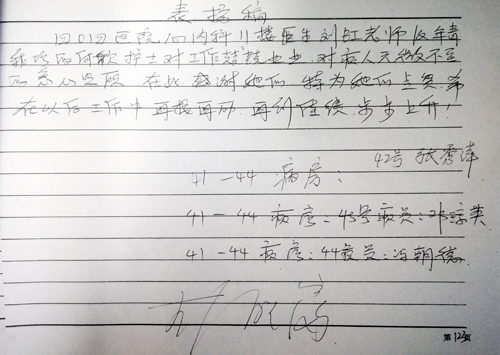 表扬稿
四〇四医院心内科11楼医生刘红老师及年青
的何欢护士对工作兢兢业业、对病人无微不至
的关心照顾 在此感谢她们 特为她们点赞、希
在以后工作中再接再励、再创佳绩、步步上升！
42号 张秀萍
41－44 病房：
41－44病房：43号病员：邓琼英
41－44病房：44病员：冯朝德
第123页